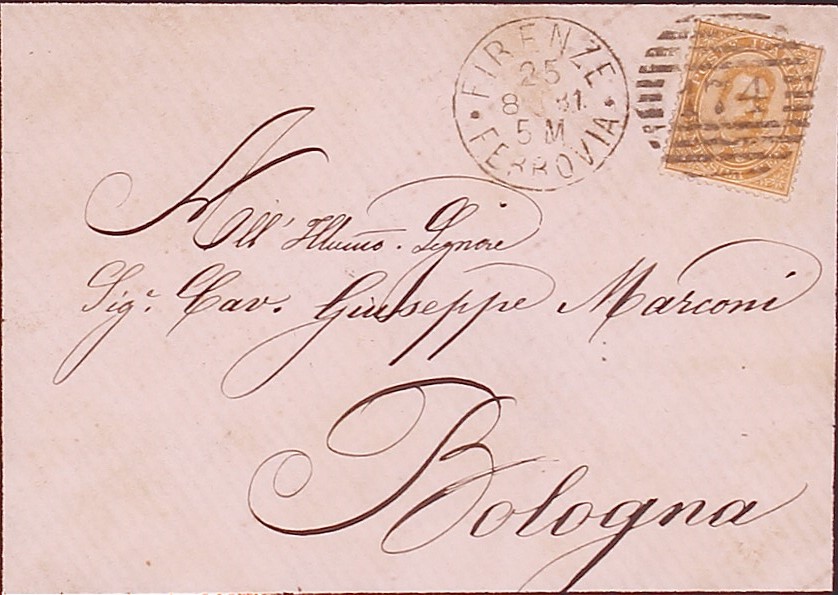 FIRENZE
25
8 81
5 M
FERROVIA
All' Illumo. Signore
Sigr. Cav. Giuseppe Marconi
Bologna